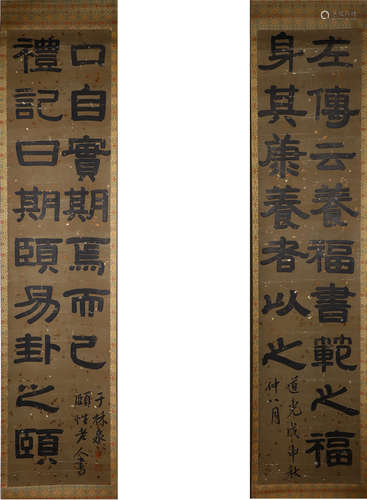 左傳云養福書範之福
身其康養者以之
道光戊申秋
仲八月
禮記曰期頤易卦之頤
口自實期焉而已
于林泉
頤性老人書